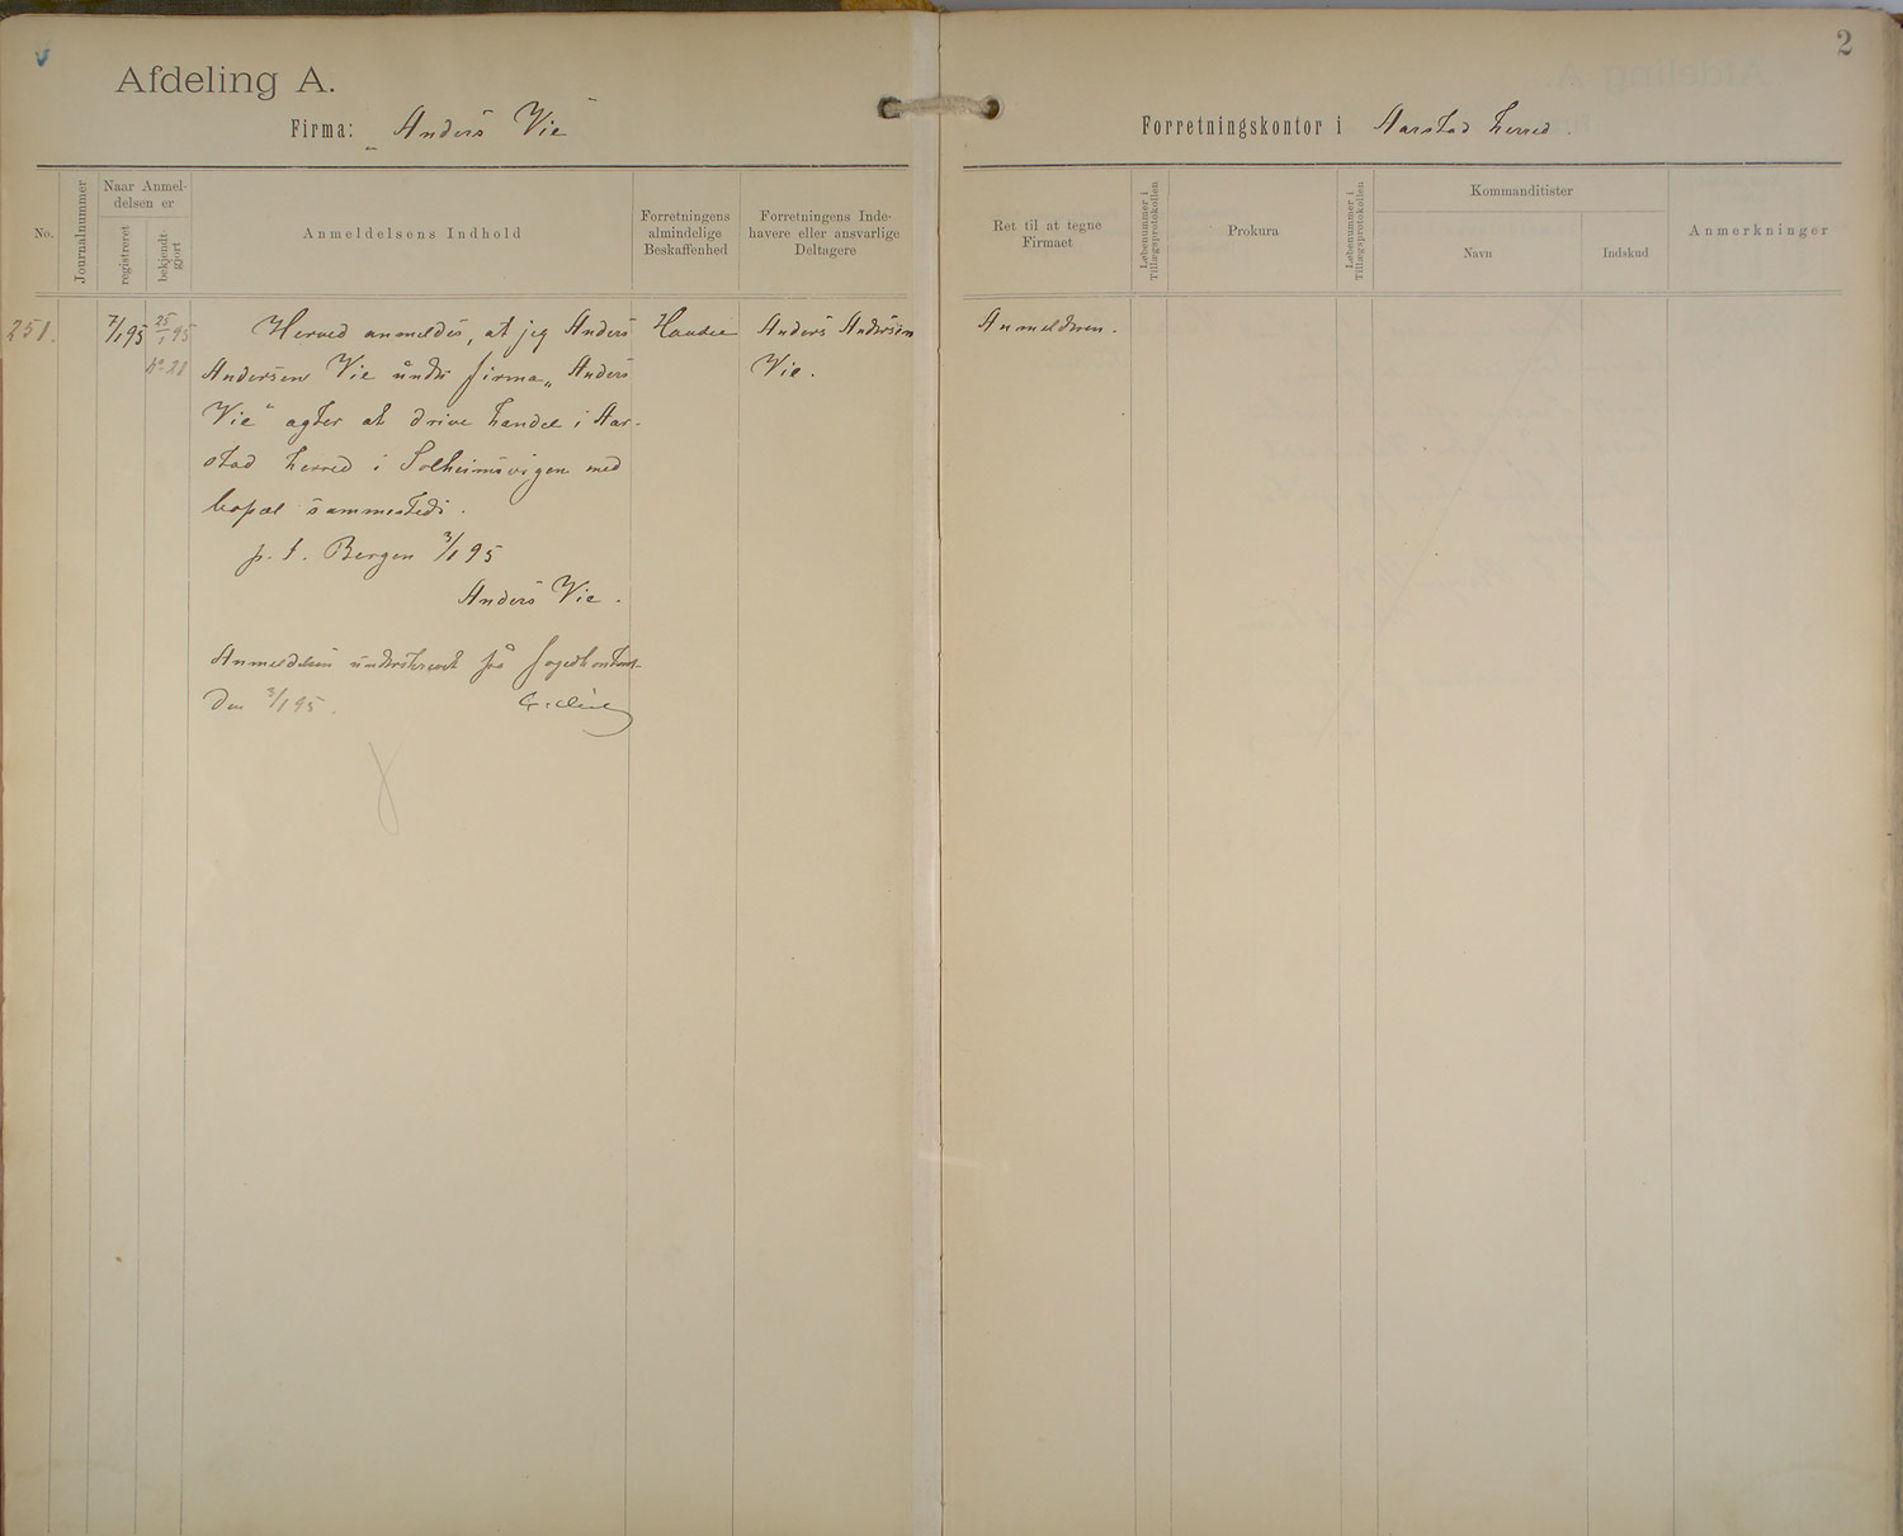 2
Afdeling A.
Firma: „Anders Vie"
Forretningskontor i Aarstad herred.
No.
Journalnummer
Naar Anmel-
delsen er
registreret
bekjendt-
gjort
Anmeldelsens Indhold
Forretningens
almindelige
Beskaffenhed
Forretningens Inde-
havere eller ansvarlige
Deltagere
Ret til at tegne
Firmaet
Løbenummer i
Tillægsprotokollen
Prokura
Løbenummer i
Tillægsprotokollen
Kommanditister
Navn
Indskud
Anmerkninger
251.
7/1 95
25/1 95
No 28
Herved anmeldes, at jeg Anders
Andersen Vie under firma „Anders
Vie" agter at drive handel i Aar-
stad herred i Solheimsvigen med
bopæl sammesteds.
p. t. Bergen 3/1 95
Anders Vie.
Anmeldelsen underskrevet på fogedkontoret
den 3/1 95.
Handel
Anders Andersen
Vie.
Anmelderen.